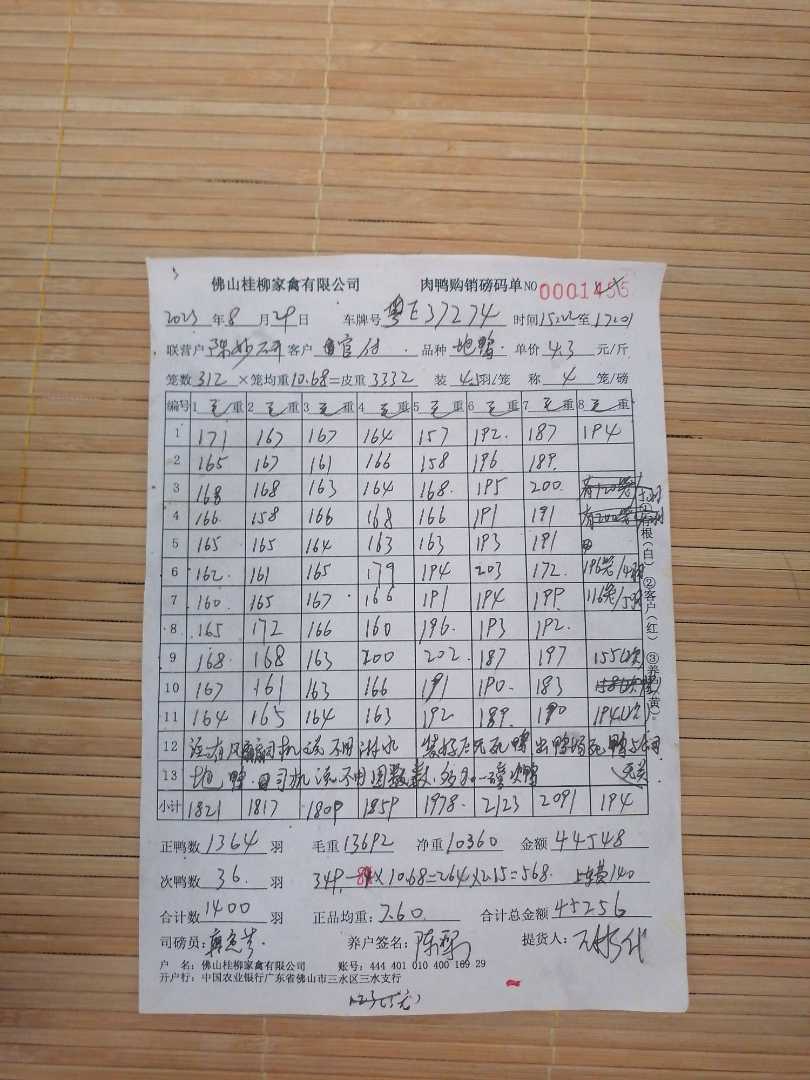 佛山桂柳家禽有限公司 肉鸭购销磅码单 NO 0001455
2023 年 8 月 29 日 车牌号 粤E37274 时间 至
联营户 客户 官付 品种 地鸭 单价 4.3 元/斤
笼数 312 × 笼均重 10.68 = 皮重 3332 装 4.5 羽/笼 称 4 笼/磅
编号 1 毛重 2 毛重 3 毛重 4 毛重 5 毛重 6 毛重 7 毛重 8 毛重
1 171 167 167 164 157 192 187 194
2 165 167 161 166 158 196 189
3 168 168 163 164 168 195 200
4 166 158 166 168 166 191 191
5 165 165 164 163 163 193 191
6 162 161 165 179 194 203 172 196笼/4羽
7 160 165 167 166 191 194 199 116笼/5羽
8 165 172 166 160 196 193 192
9 168 168 163 200 202 187 197 155(次)
10 167 161 163 166 191 190 183
11 164 165 164 163 192 189 190 194(次)
12 没有风 司机说不用淋水 装好后无死鸭 出鸭场死鸭与公司
13 地鸭 司机说不用 数 无关
小计 1821 1817 1809 1859 1978 2123 2091 194
①存根(白) ②客户(红) ③养户(黄)
正鸭数 1364 羽 毛重 13692 净重 10360 金额 44548
次鸭数 36 羽 349 - 8 × 10.68 = 264 × 2.15 = 568 140
合计数 1400 羽 正品均重: 7.60 合计总金额 45256
司磅员: 养户签名: 陈 提货人:
户 名: 佛山桂柳家禽有限公司 账号: 444 401 010 400 169 29
开户行: 中国农业银行广东省佛山市三水区三水支行